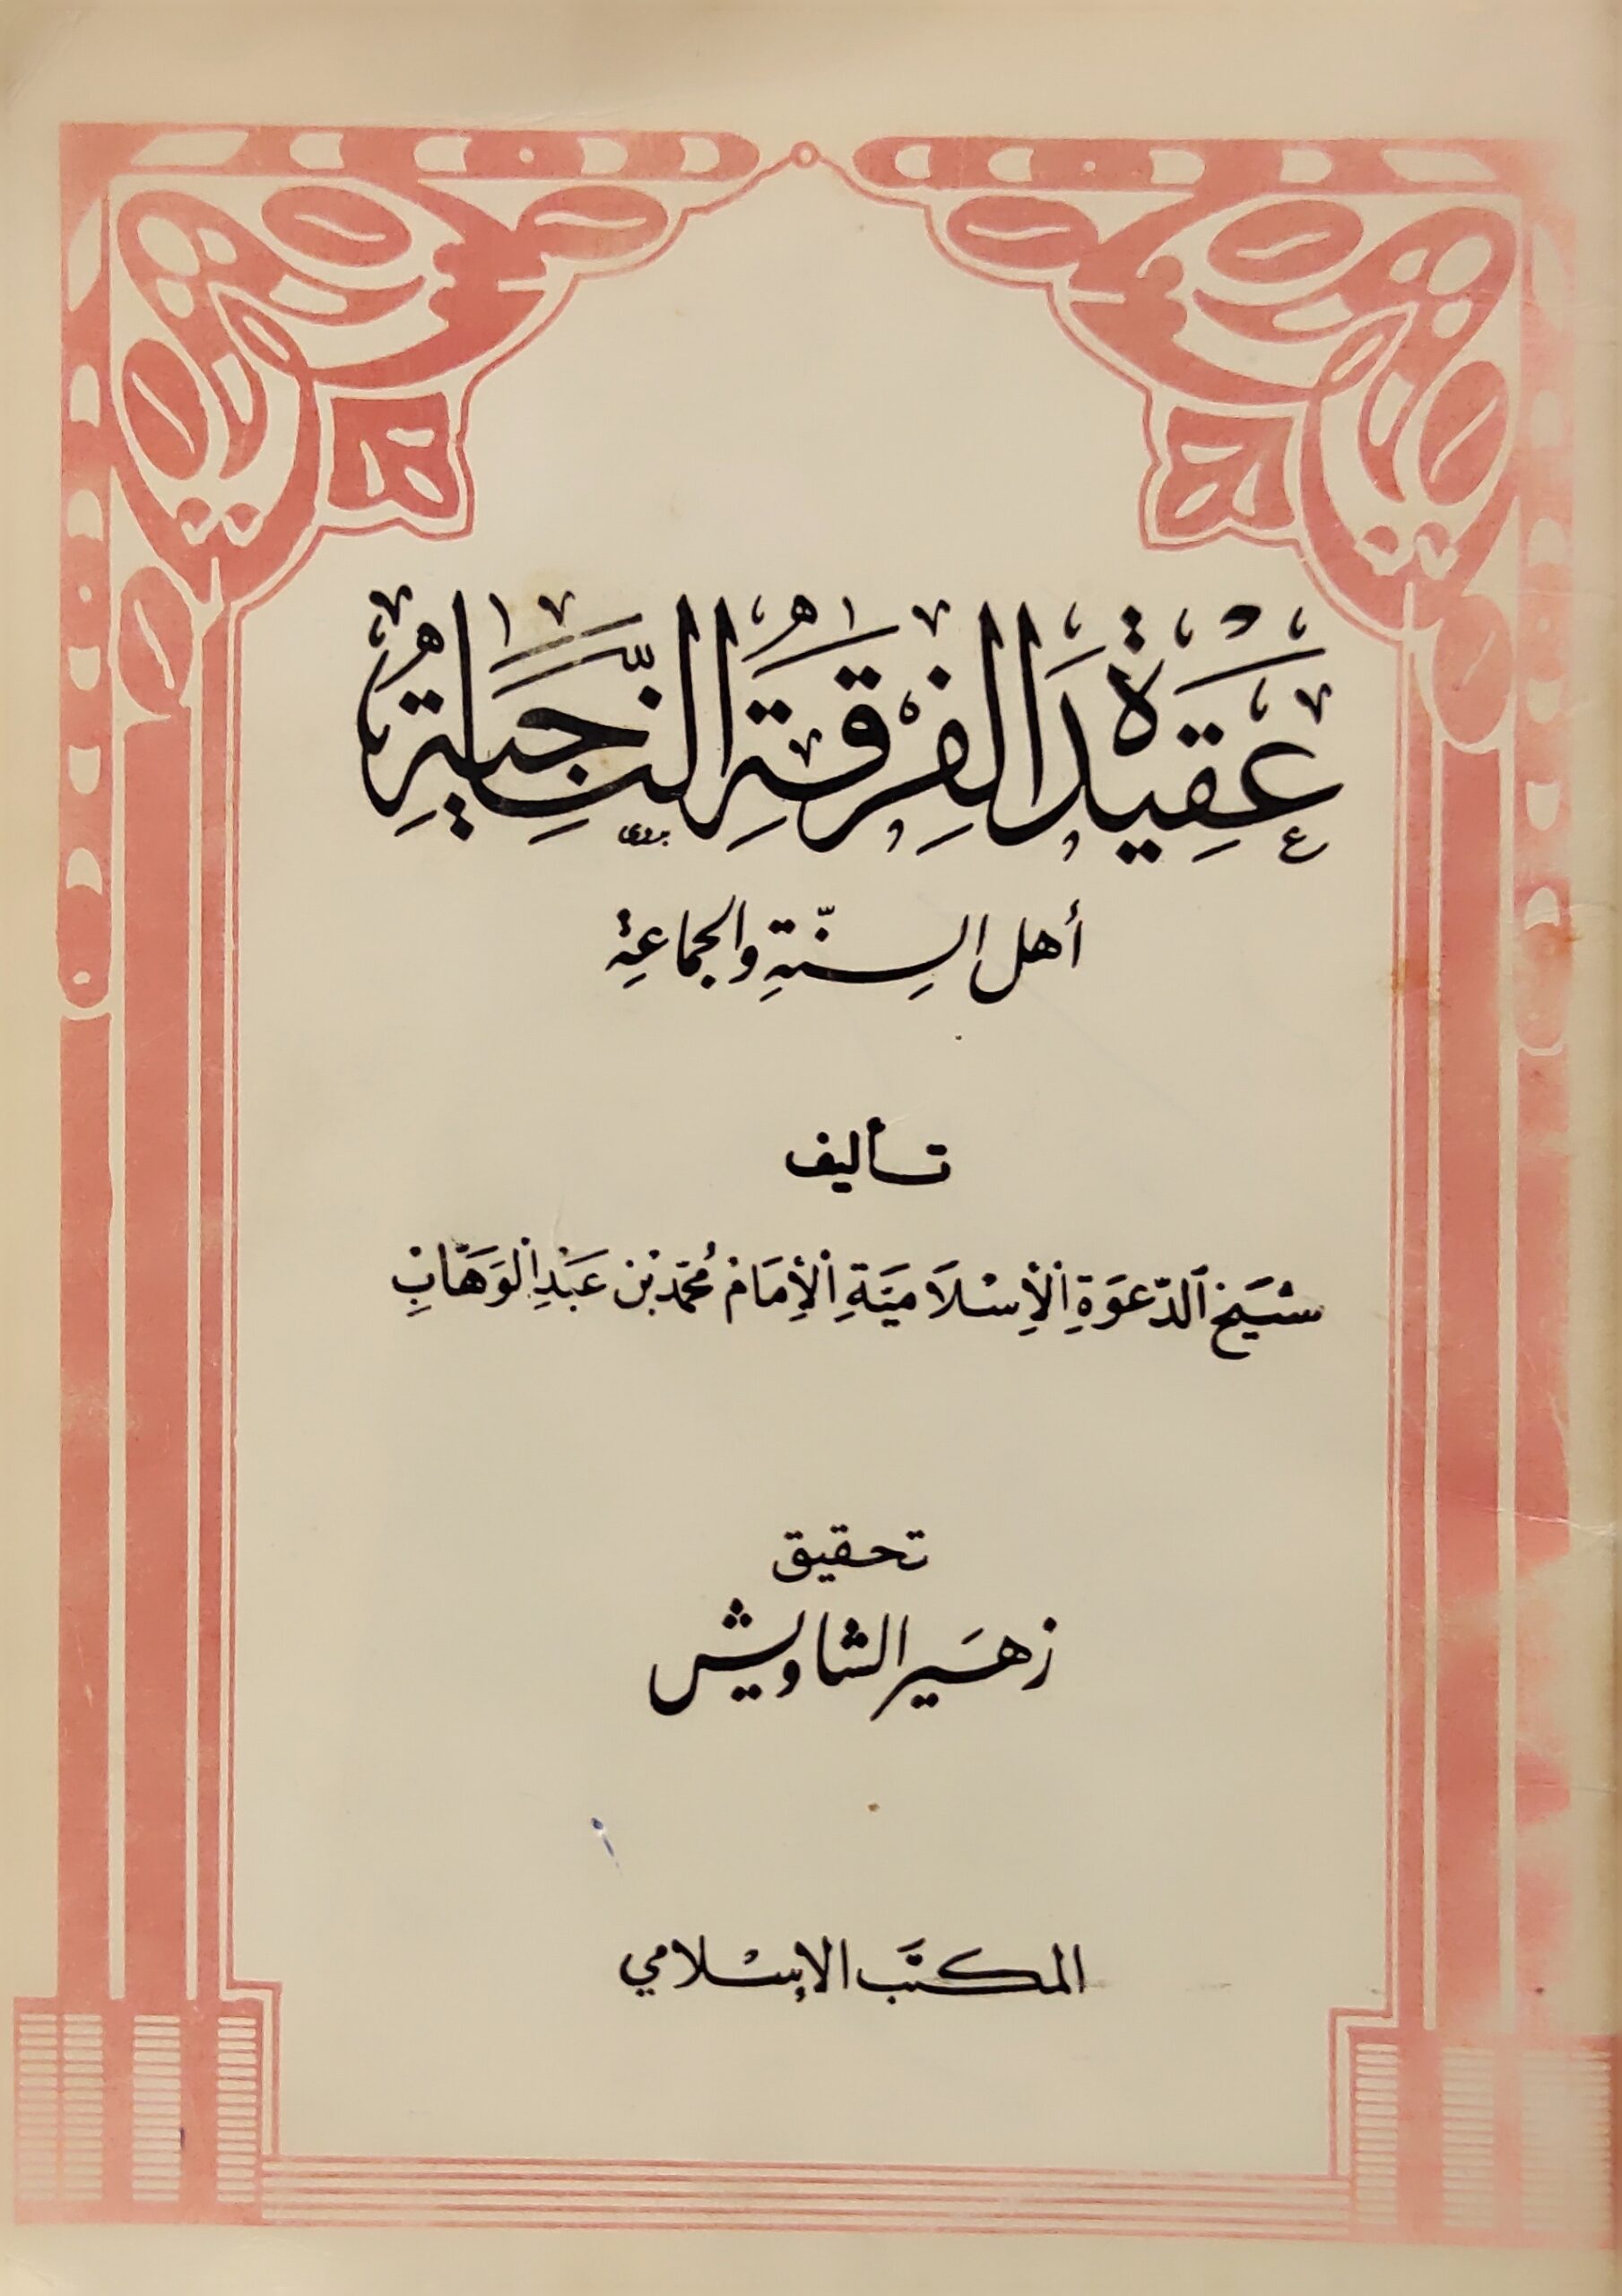 عقيدة الفرقة الناجية
أهل السنّةِ والجماعة
تأليف
شيخ الدّعوة الإسلامية الإمام محمّد بن عبد الوهّاب
تحقيق
زهير الشاويش
المكتب الإسلامي